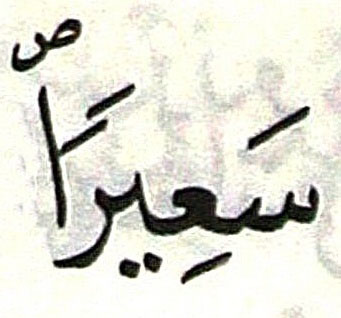 سَعِيرًا ص